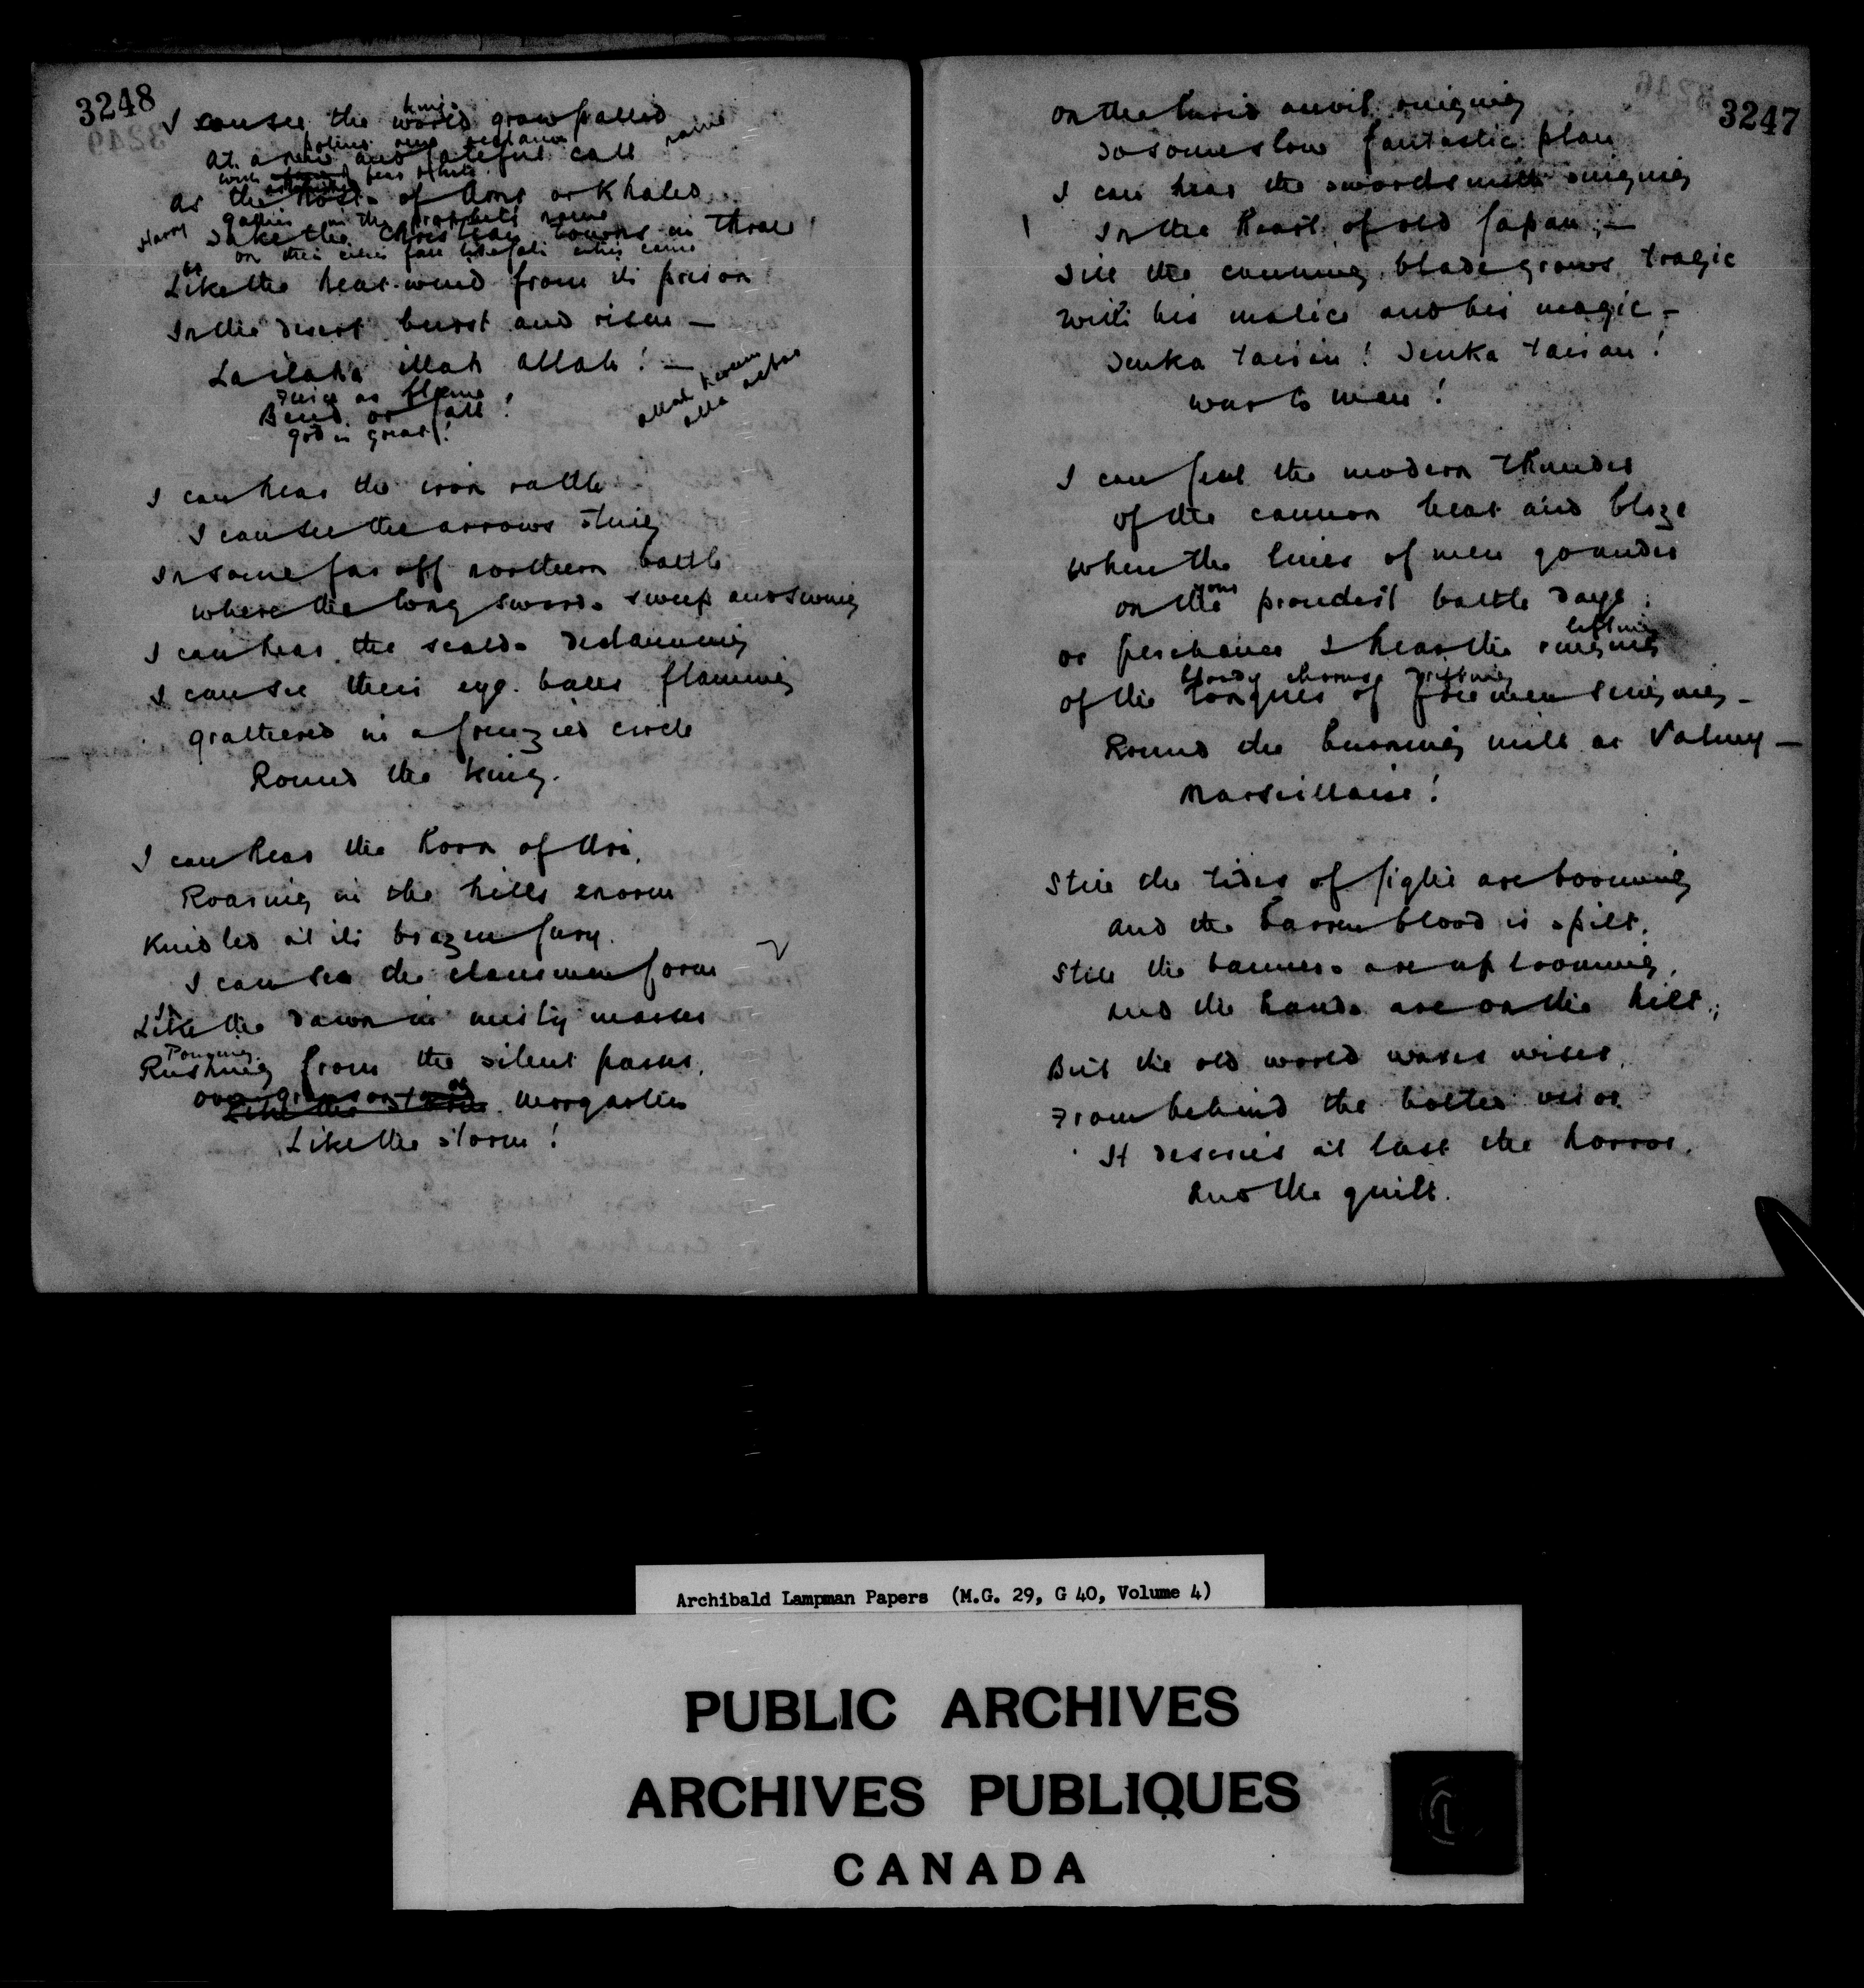 3248
I can see the world grow pallid
kings
At a new and fateful call
As the hosts of Amr or Khaled
gather in the prophet's name
Harry
Take the Christian towns in thrall
Like the heat-wind from its prison
In the desert burst and risen —
La ilaha illah allah! —
Bend or fall!
God is great!
I can hear the iron rattle
I can see the arrows sting
In some far off northern battle
where the long swords sweep and swing
I can hear the scalds declaiming
I can see their eye-balls flaming
gathered in a frenzied circle
Round the king.
I can hear the horn of Uri,
Roaring in the hills enorm
Kindled at its brazen fury.
I can see the clansmen form
Like the dawn in misty masses
Pouring
Rushing from the silent passes,
over Morgarten
Like the storm!
3247
On the lurid anvil ringing
To some slow fantastic plan
I can hear the swordsmith singing
In the heart of old Japan, —
Till the cunning blade grows tragic
With his malice and his magic —
Tenka tairan! Tenka tairan!
War to man!
I can feel the modern thunder
of the cannon beat and blaze
when the lines of men go under
on the proudest battle days;
your
or perchance I hear the ringing
lifting
bloody chorus drifting
of the tongues of freemen singing —
Round the burning mill at Valmy —
Marseillaise!
Still the tides of fight are booming
And the barren blood is spilt,
Still the banners are up looming,
And the hands are on the hilt;
But the old world waxes wiser,
From behind the bolted visor
It descries at last the horror,
And the guilt.
Archibald Lampman Papers (M.G. 29, G 40, Volume 4)
PUBLIC ARCHIVES
ARCHIVES PUBLIQUES
CANADA